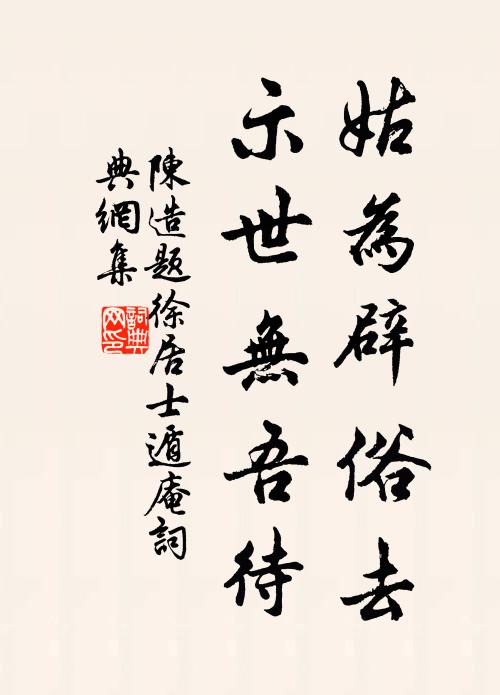 姑為辟俗去
示世無吾待
陳造題徐居士遁庵詞
典網集
詞典
网印